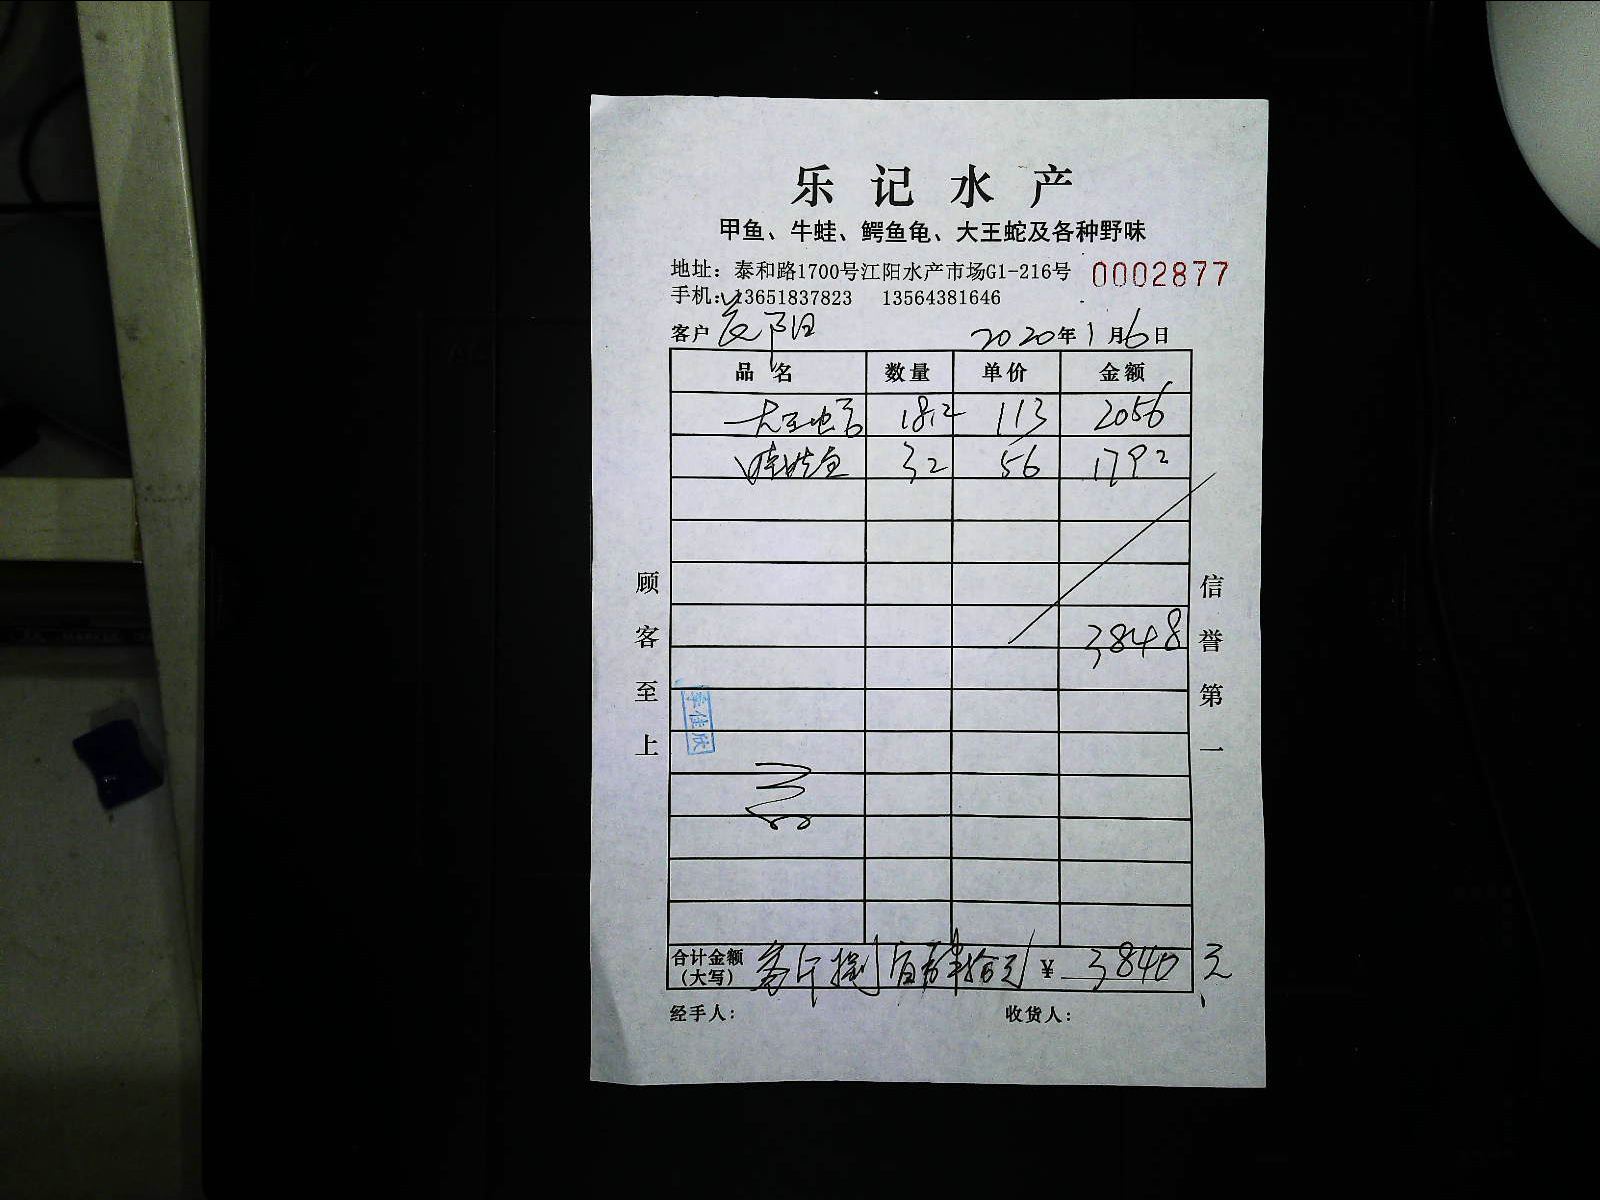 乐记水产
甲鱼、牛蛙、鳄鱼龟、大王蛇及各种野味
地址：泰和路1700号江阳水产市场G1-216号 0002877
手机：13651837823 13564381646
客户 2020年1月6日
品名 数量 单价 金额
大王蛇 18.2 113 2056
娃娃鱼 32 56 1792
3848
顾客至上
信誉第一
李佳欣
合计金额（大写） 叁仟捌佰肆拾元 ¥ 3840元
经手人： 收货人：